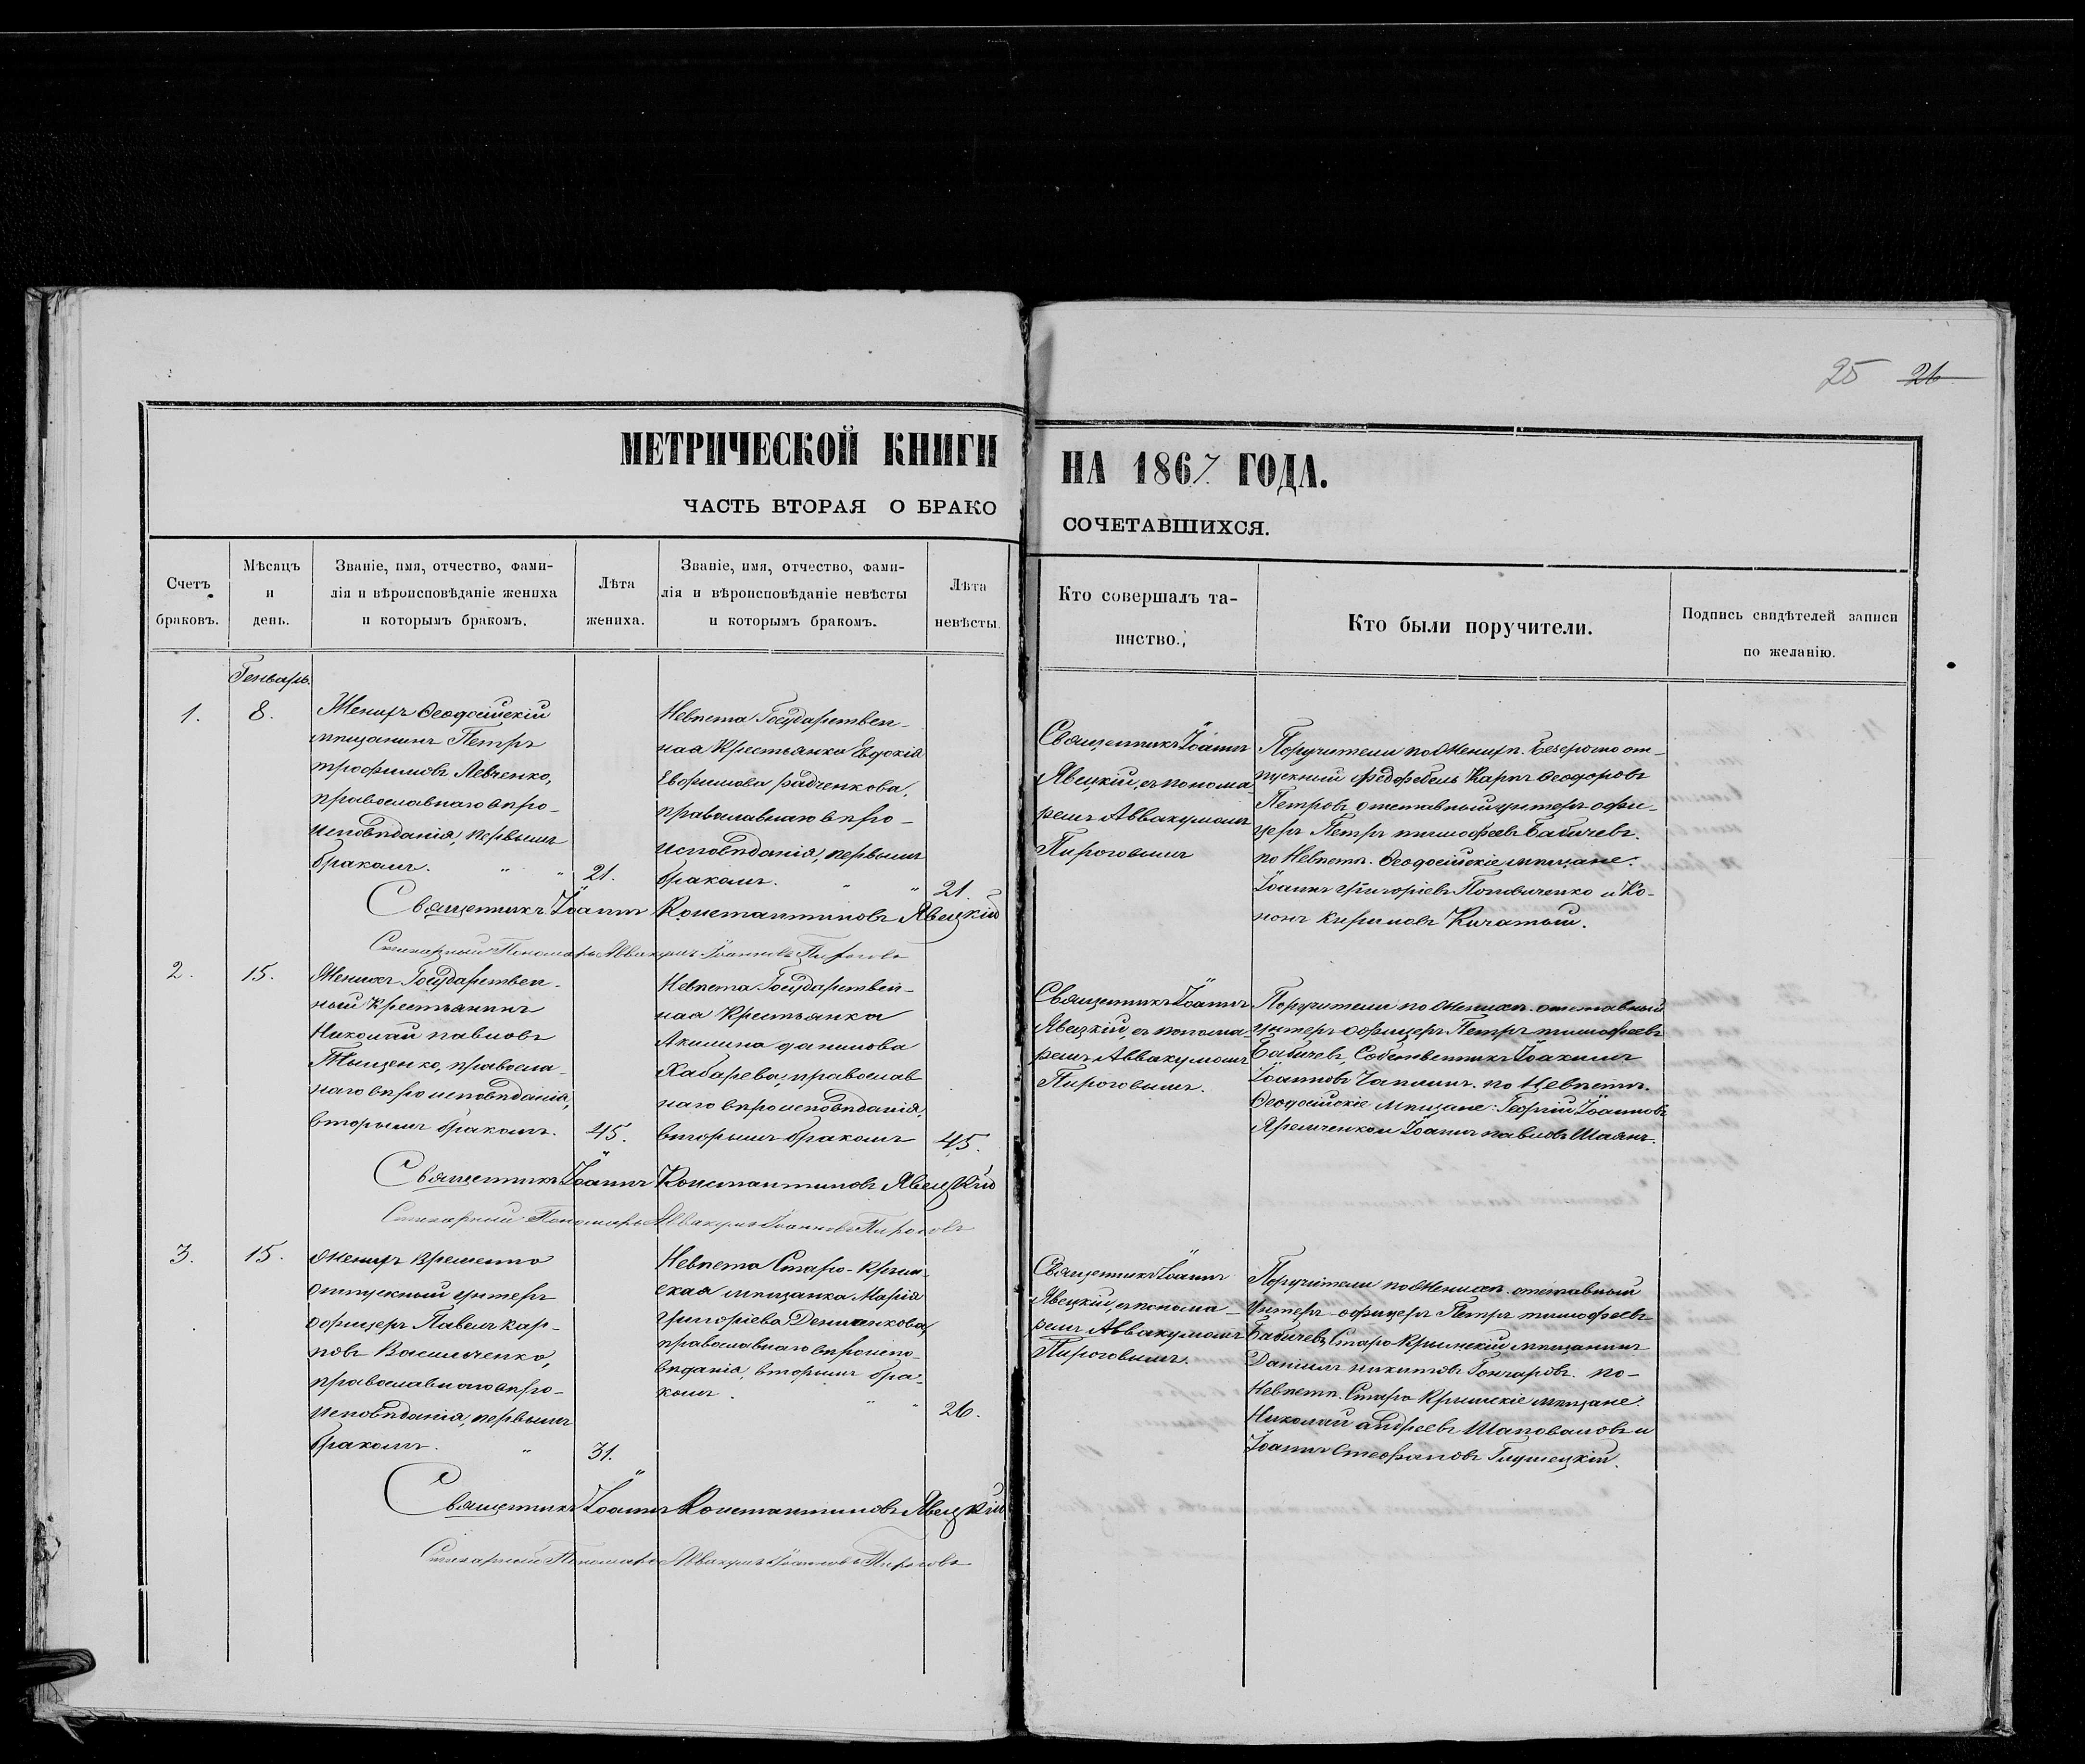 25 26
МЕТРИЧЕСКОЙ КНИГИ НА 1867 ГОДА.
ЧАСТЬ ВТОРАЯ О БРАКО СОЧЕТАВШИХСЯ.
Счетъ браковъ.
Мѣсяцъ и день.
Званіе, имя, отчество, фами-
лія и вѣроисповѣданіе жениха
и которымъ бракомъ.
Лѣта жениха.
Званіе, имя, отчество, фами-
лія и вѣроисповѣданіе невѣсты
и которымъ бракомъ.
Лѣта невѣсты.
Кто совершалъ та-
инство.
Кто были поручители.
Подпись свидѣтелей записи
по желанію.
Генварь.
1.
8.
Женихъ Ѳеодосійскій
мѣщанинъ Петръ
трофимовъ Левченко,
православнаго вѣро-
исповѣданія, первымъ
бракомъ.
21.
Невѣста Государствен-
ная Крестьянка Евдокія
Евфимова Радченкова,
православнаго вѣро-
исповѣданія, первымъ
бракомъ.
21.
Священникъ Іоаннъ
Явецкій, съ понома-
ремъ Аввакумомъ
Пироговымъ
Поручители по Женихѣ. Безсрочно от-
пускный фелдфебель Карпъ Ѳеодоровъ
Петровъ отставный унтеръ офи-
церъ Петръ тимофеевъ Бабичевъ.
по Невѣстѣ. Ѳеодосійскіе мѣщане.
Іоаннъ григоріевъ Поповиченко и Ко-
нонъ Кириловъ Кичатый.
Священникъ Іоаннъ Константиновъ Явецкій
Стихарный Пономарь Аввакумъ Іоанновъ Пироговъ
2.
15.
Женихъ Государствен-
ный Крестьянинъ
Николай павловъ
Тищенко, правосла-
наго вѣроисповѣданія,
вторымъ бракомъ.
45.
Невѣста Государствен-
ная Крестьянка
Акилина данилова
Хабарева, православ
наго вѣроисповѣданія,
вторымъ бракомъ
45.
Священникъ Іоаннъ
Явецкій, съ понома-
ремъ Аввакумомъ
Пироговымъ.
Поручители по Женихѣ. отставный
унтеръ-офицеръ Петръ тимофеевъ
Бабичевъ, Собственникъ Іоакимъ
Іоанновъ по Невѣстѣ.
Ѳеодосійскіе мѣщане: Георгій Іоанновъ
Яременко и Іоаннъ павловъ Шаянъ.
Священникъ Іоаннъ Константиновъ Явецкій
Стихарный Пономарь Аввакумъ Іоанновъ Пироговъ
3.
15.
Женихъ Временно
отпускный унтеръ
офицеръ Павелъ кар-
повъ Васильченко,
православнаго вѣро-
исповѣданія, первымъ
бракомъ.
31.
Невѣста Старо-Крым-
ская мѣщанка Марія
григоріева Демианкова,
православнаго вѣроиспо-
вѣданія, вторымъ бра-
комъ.
26.
Священникъ Іоаннъ
Явецкій, съ понома-
ремъ Аввакумомъ
Пироговымъ.
Поручители по Женихѣ. отставный
Унтеръ-офицеръ Петръ тимофеевъ
Бабичевъ, Старо-Крымскій мѣщанинъ
Даніилъ никитовъ Гончаровъ. по-
Невѣстѣ. Старо Крымскіе мѣщане.
Николай андреевъ Шаповаловъ и
Іоаннъ Стефановъ
Священникъ Іоаннъ Константиновъ Явецкій
Стихарный Пономарь Аввакумъ Іоанновъ Пироговъ